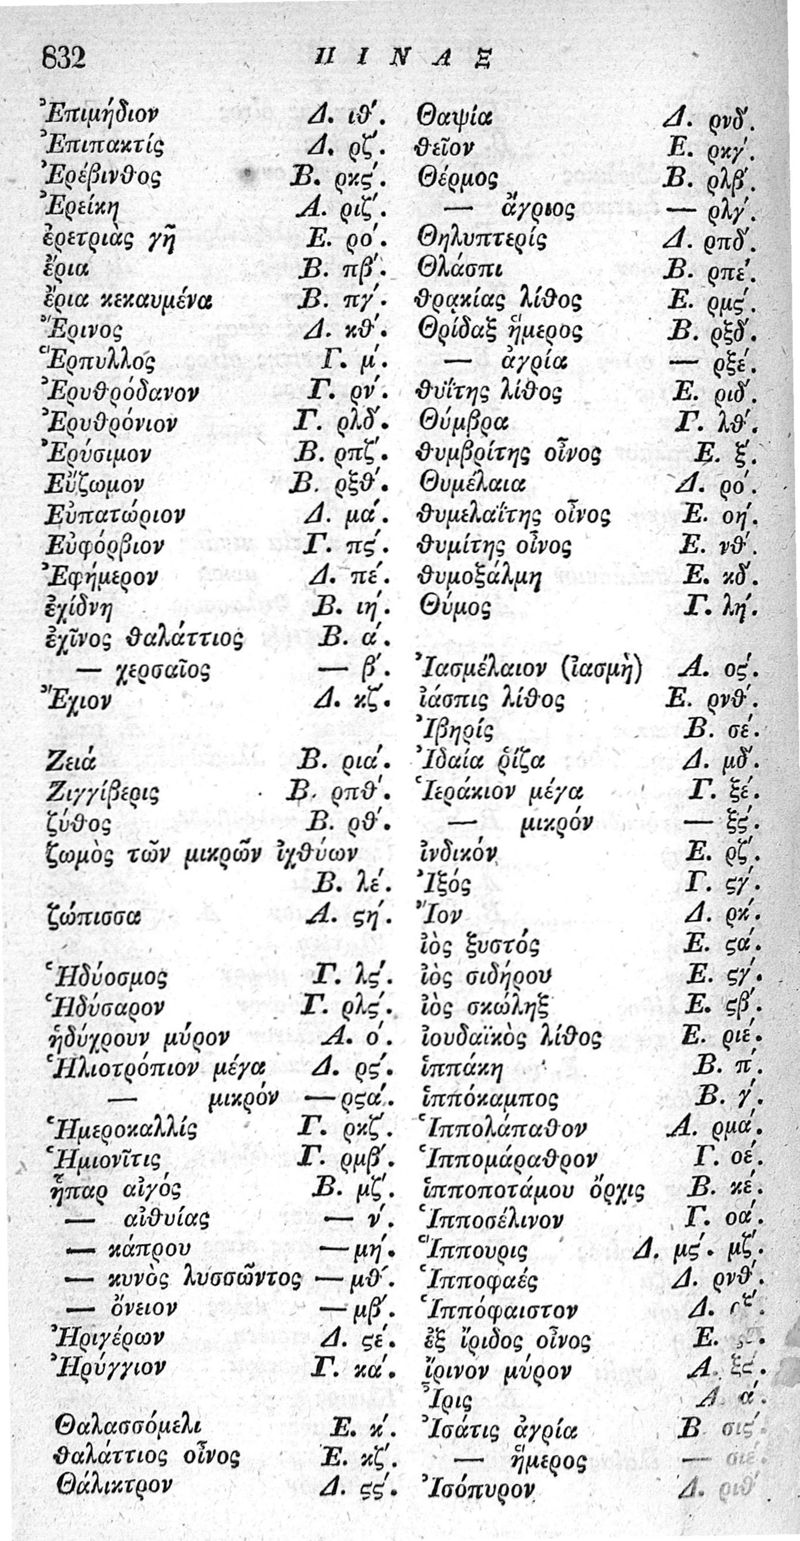 832 ΠΙΝΑΞ
Ἐπιμήδιον Δ. ιθ΄.
Ἐπιπακτίς Δ. ρζ΄.
Ἐρέβινθος Β. ρκς΄.
Ἐρείκη Α. ριζ΄.
ἐρετριὰς γῆ Ε. ρο΄.
ἔρια Β. πβ΄.
ἔρια κεκαυμένα Β. πγ΄.
Ἔρινος Δ. κθ΄.
Ἕρπυλλος Γ. μ΄.
Ἐρυθρόδανον Γ. ρν΄.
Ἐρυθρόνιον Γ. ρλδ΄.
Ἐρύσιμον Β. ρπζ΄.
Εὔζωμον Β. ρξθ΄.
Εὐπατώριον Δ. μα΄.
Εὐφόρβιον Γ. πς΄.
Ἐφήμερον Δ. πέ.
ἐχίδνη Β. ιή.
ἐχῖνος θαλάττιος Β. ά.
— χερσαῖος — β΄.
Ἔχιον Δ. κζ΄.
Ζειά Β. ριά.
Ζιγγίβερις Β. ρπθ΄.
ζύθος Β. ρθ΄.
ζωμὸς τῶν μικρῶν ἰχθύων
Β. λέ.
ζώπισσα Α. ςή.
Ἡδύοσμος Γ. λς΄.
Ἡδύσαρον Γ. ρλς΄.
ἡδύχρουν μύρον Α. ό.
Ἡλιοτρόπιον μέγα Δ. ρς΄.
— μικρόν — ρςά.
Ἡμεροκαλλίς Γ. ρκζ΄.
Ἡμιονῖτις Γ. ρμβ΄.
ἧπαρ αἰγός Β. μζ΄.
— αἰθυίας — ν΄.
— κάπρου — μή.
— κυνὸς λυσσῶντος — μθ΄.
— ὄνειον — μβ΄.
Ἠριγέρων Δ. ςέ.
Ἠρύγγιον Γ. κά.
Θαλασσόμελι Ε. κ΄.
θαλάττιος οἶνος Ε. κζ΄.
Θάλικτρον Δ. ςς΄.
Θαψία Δ. ρνδ΄.
θεῖον Ε. ρκγ΄.
Θέρμος Β. ρλβ΄.
— ἄγριος — ρλγ΄.
Θηλυπτερίς Δ. ρπδ΄.
Θλάσπι Β. ρπέ.
θρᾳκίας λίθος Ε. ρμς΄.
Θρίδαξ ἥμερος Β. ρξδ΄.
— ἀγρία — ρξέ.
θυΐτης λίθος Ε. ριδ΄.
Θύμβρα Γ. λθ΄.
θυμβρίτης οἶνος Ε. ξ΄.
Θυμέλαια Δ. ρό.
θυμελαΐτης οἶνος Ε. οή.
θυμίτης οἶνος Ε. νθ΄.
θυμοξάλμη Ε. κδ΄.
Θύμος Γ. λή.
Ἰασμέλαιον (ἰασμὴ) Α. ος΄.
ἰάσπις λίθος Ε. ρνθ΄.
Ἰβηρίς Β. σέ.
Ἰδαία ῥίζα Δ. μδ΄.
Ἱεράκιον μέγα Γ. ξέ.
— μικρόν — ξς΄.
ἰνδικόν Ε. ρζ΄.
Ἰξός Γ. ςγ΄.
Ἴον Δ. ρκ΄.
ἰὸς ξυστός Ε. ςά.
ἰὸς σιδήρου Ε. ςγ΄.
ἰὸς σκώληξ Ε. ςβ΄.
ἰουδαϊκὸς λίθος Ε. ριέ.
ἱππάκη Β. π΄.
ἱππόκαμπος Β. γ΄.
Ἱππολάπαθον Α. ρμά.
Ἱππομάραθρον Γ. οέ.
ἱπποποτάμου ὄρχις Β. κέ.
Ἱπποσέλινον Γ. οά.
Ἵππουρις Δ. μς΄. μζ΄.
Ἱπποφαές Δ. ρνθ΄.
Ἱππόφαιστον Δ.
ἐξ ἴριδος οἶνος Ε.
ἴρινον μύρον Α. ξς΄.
Ἶρις Α ά.
Ἰσάτις ἀγρία Β σις΄
— ἥμερος — σιέ
Ἰσόπυρον Δ. ριθ΄